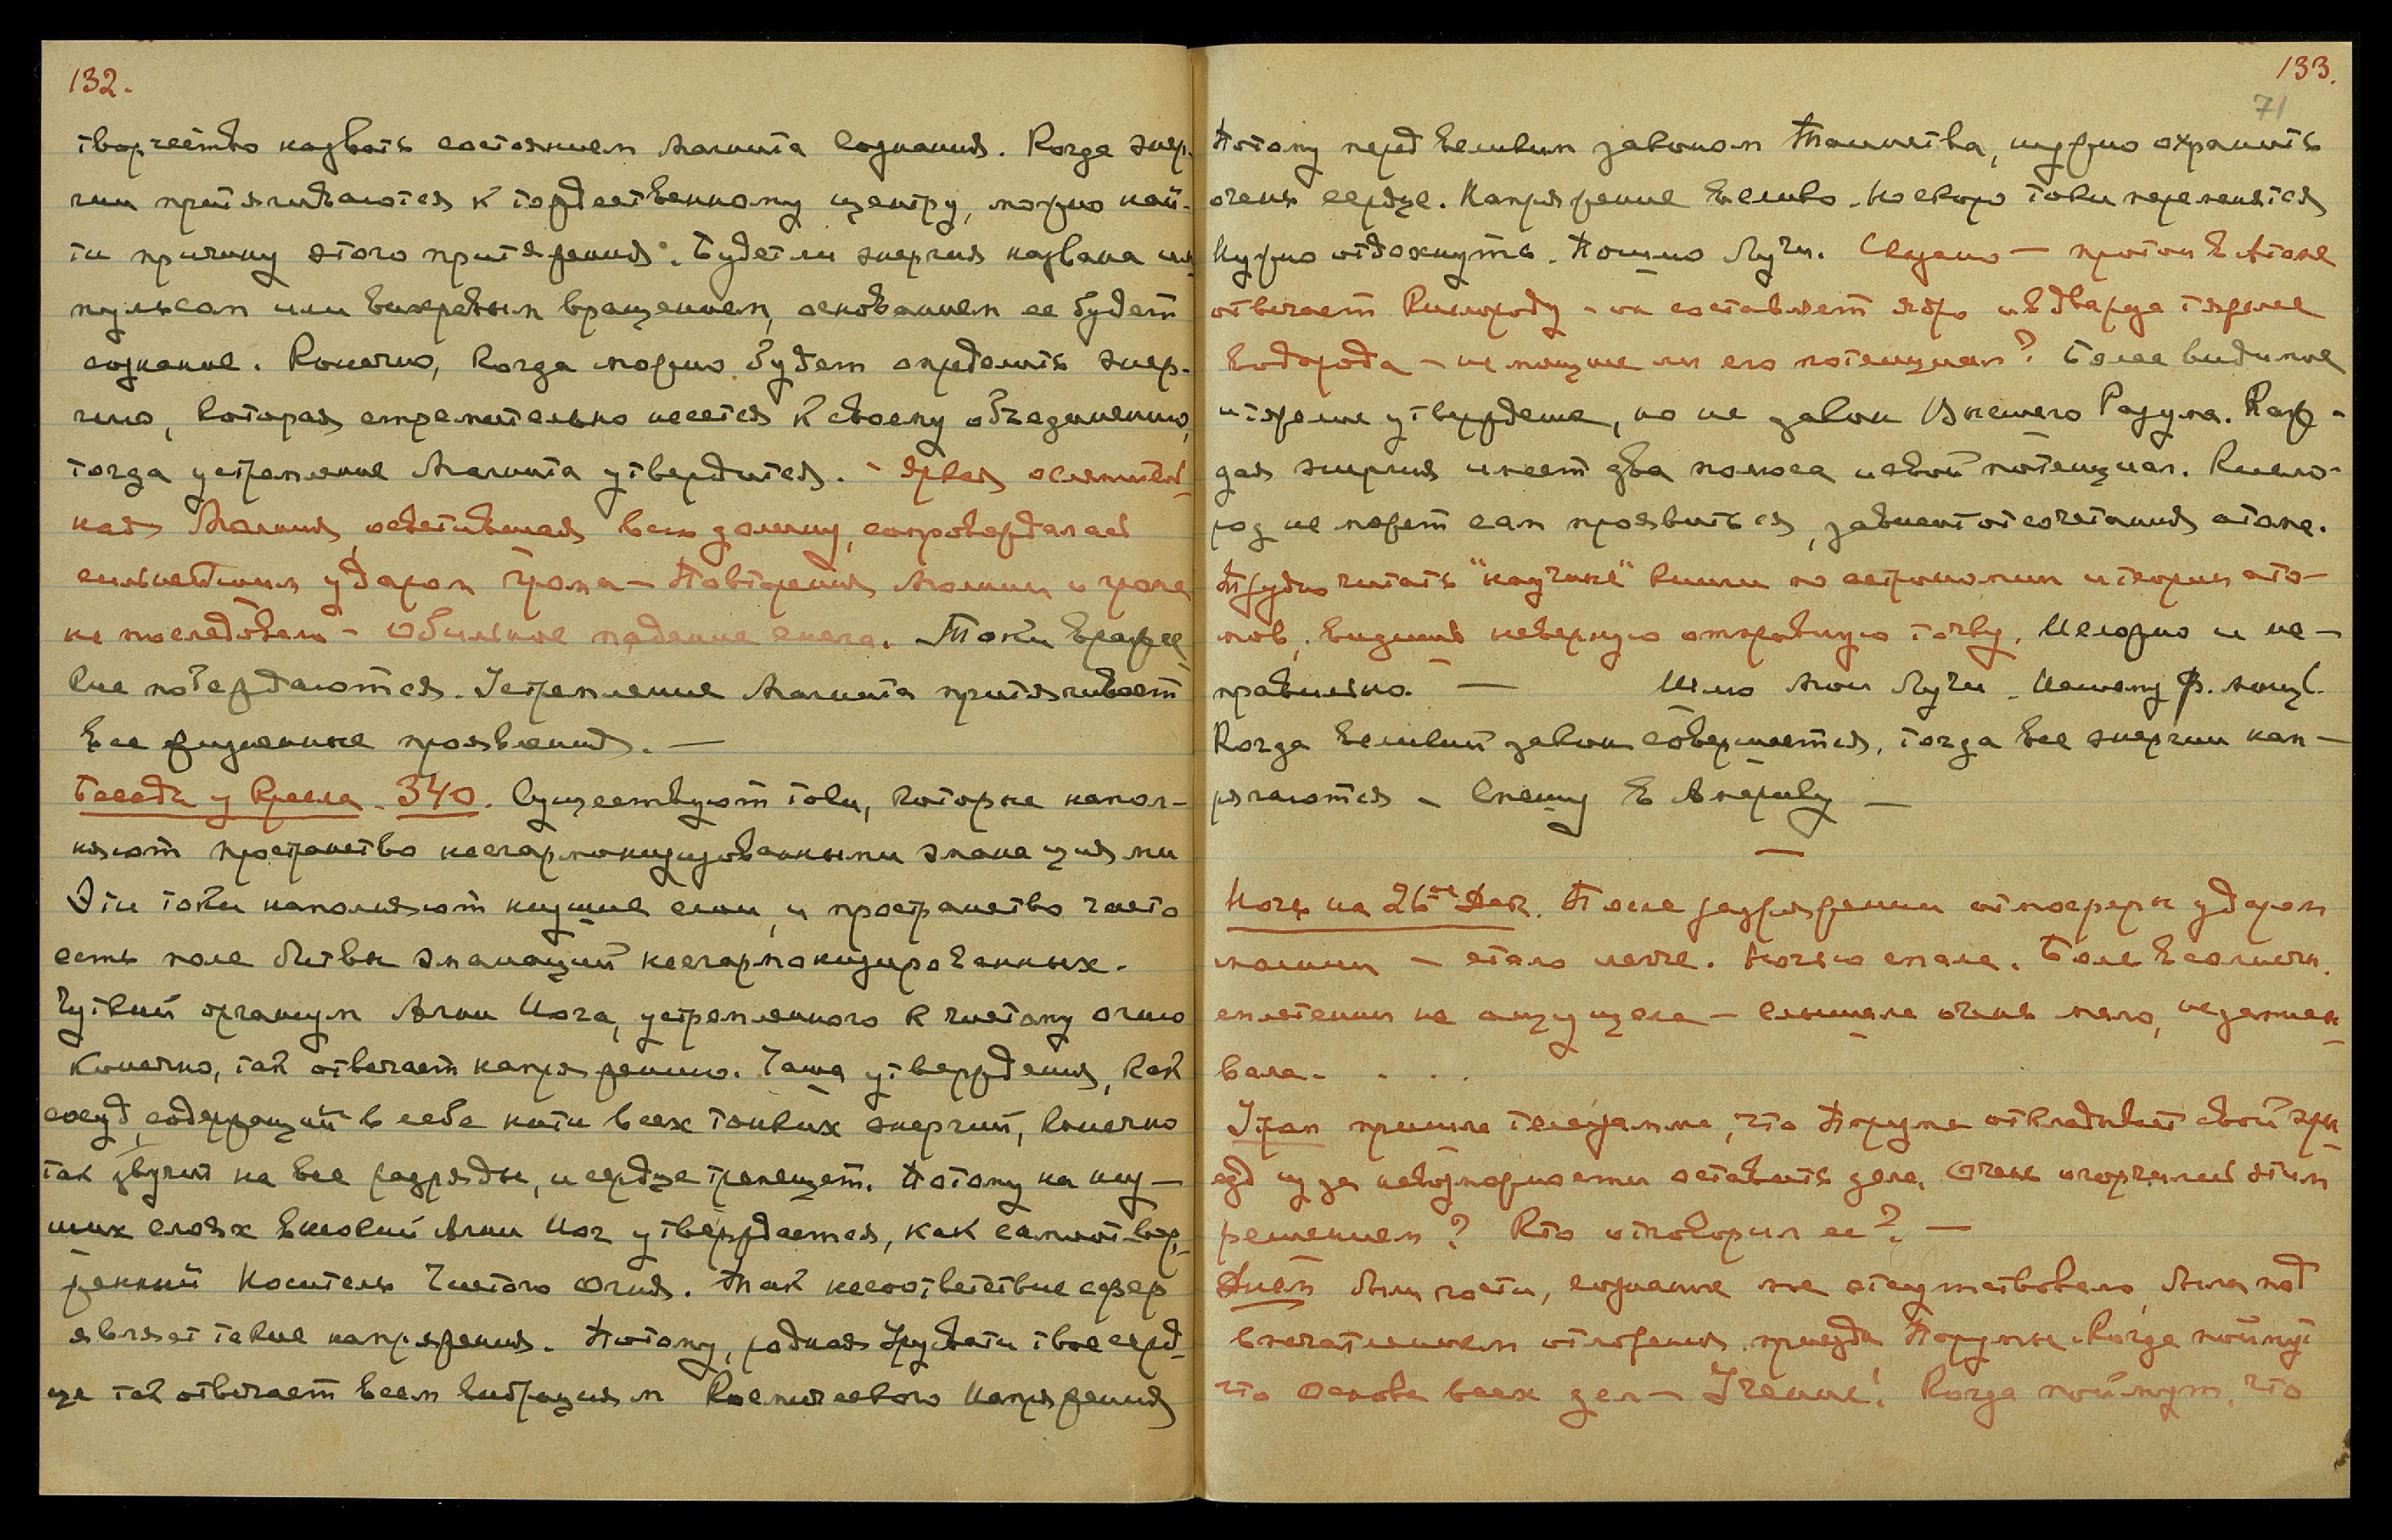 132.
творчество назвать состоянием Магнита Сознания. Когда энер-
гии притягиваются к тождественному центру, можно най-
ти причину этого притяжения. Будет ли энергия названа им-
пульсом или вихревым вращением, основанием ее будет
сознание. Конечно, когда можно будет определить энер-
гию, которая стремительно несется к своему объединению,
тогда устремление Магнита утвердится. - Яркая ослепитель-
ная Молния, осветившая всю долину, сопровождалась
сильнейшим ударом грома — Повторения молнии и грома
не последовало - Обильное падение снега. Токи вражес-
кие побеждаются. Устремление Магнита притягивает
Все жизненные проявления. —
Беседа у Кресла. 340. Существуют токи, которые напол-
няют пространство несгармонизированными эманациями
Эти токи наполняют низшие слои, и пространство часто
есть поле битвы эманаций несгармонизированных.
Чуткий организм Агни Йога, устремленного к чистому огню
Конечно, так отвечает напряжению. Чаша утверждения, как
сосуд, содержащий в себе нити всех тонких энергий, конечно
так звучит на все разряды, и сердце трепещет. Потому на низ-
ших слоях высокий Агни Йог утверждается, как самоотвер-
женный Носитель Чистого Огня. Так несоответствие сфер
являет такие напряжения. Потому, родная Урусвати твое серд-
це так отвечает всем вибрациям Космического Напряжения
133.
71
Потому перед великим законом Таинства, нужно охранить
очень сердце. Напряжение велико. Но скоро токи переменятся
Нужно отдохнуть. Пошлю Лучи. Сказано — протон в Атоме
отвечает Кислороду - он составляет ядро и в дважды тяжелее
Водорода - не мощнее ли его потенциал? Более видимое
и тяжелее утверждение, но не закон Высшего Разума. Каж-
дая энергия имеет два полюса и свой потенциал. Кисло-
род не может сам проявиться, зависит от сочетания атома.
Трудно читать "научные" книги по астрономии и теории ато-
мов, видишь неверную отправную точку. Неложно и не-
правильно. — Шлю мои Лучи.
Когда великий закон совершается, тогда все энергии нап-
рягаются - Спешу в Америку —
—
Ночь на 26ое Дек. После разряжения атмосферы ударом
молнии — стало легче. Ночью спала. Боли в солнечн.
сплетении не ощущала — слышала очень мало, не записы-
вала. . . .
Утром пришла телеграмма, что Порума откладывает свой при-
езд из за невозможности оставить дела. Очень огорчились этим
решением? Кто отговорил ее? —
Днем были гости, сознание мое отсутствовало, была под
впечатлением отложения приезда Порумы. Когда поймут
что Основа всех дел — Учение! Когда поймут, что